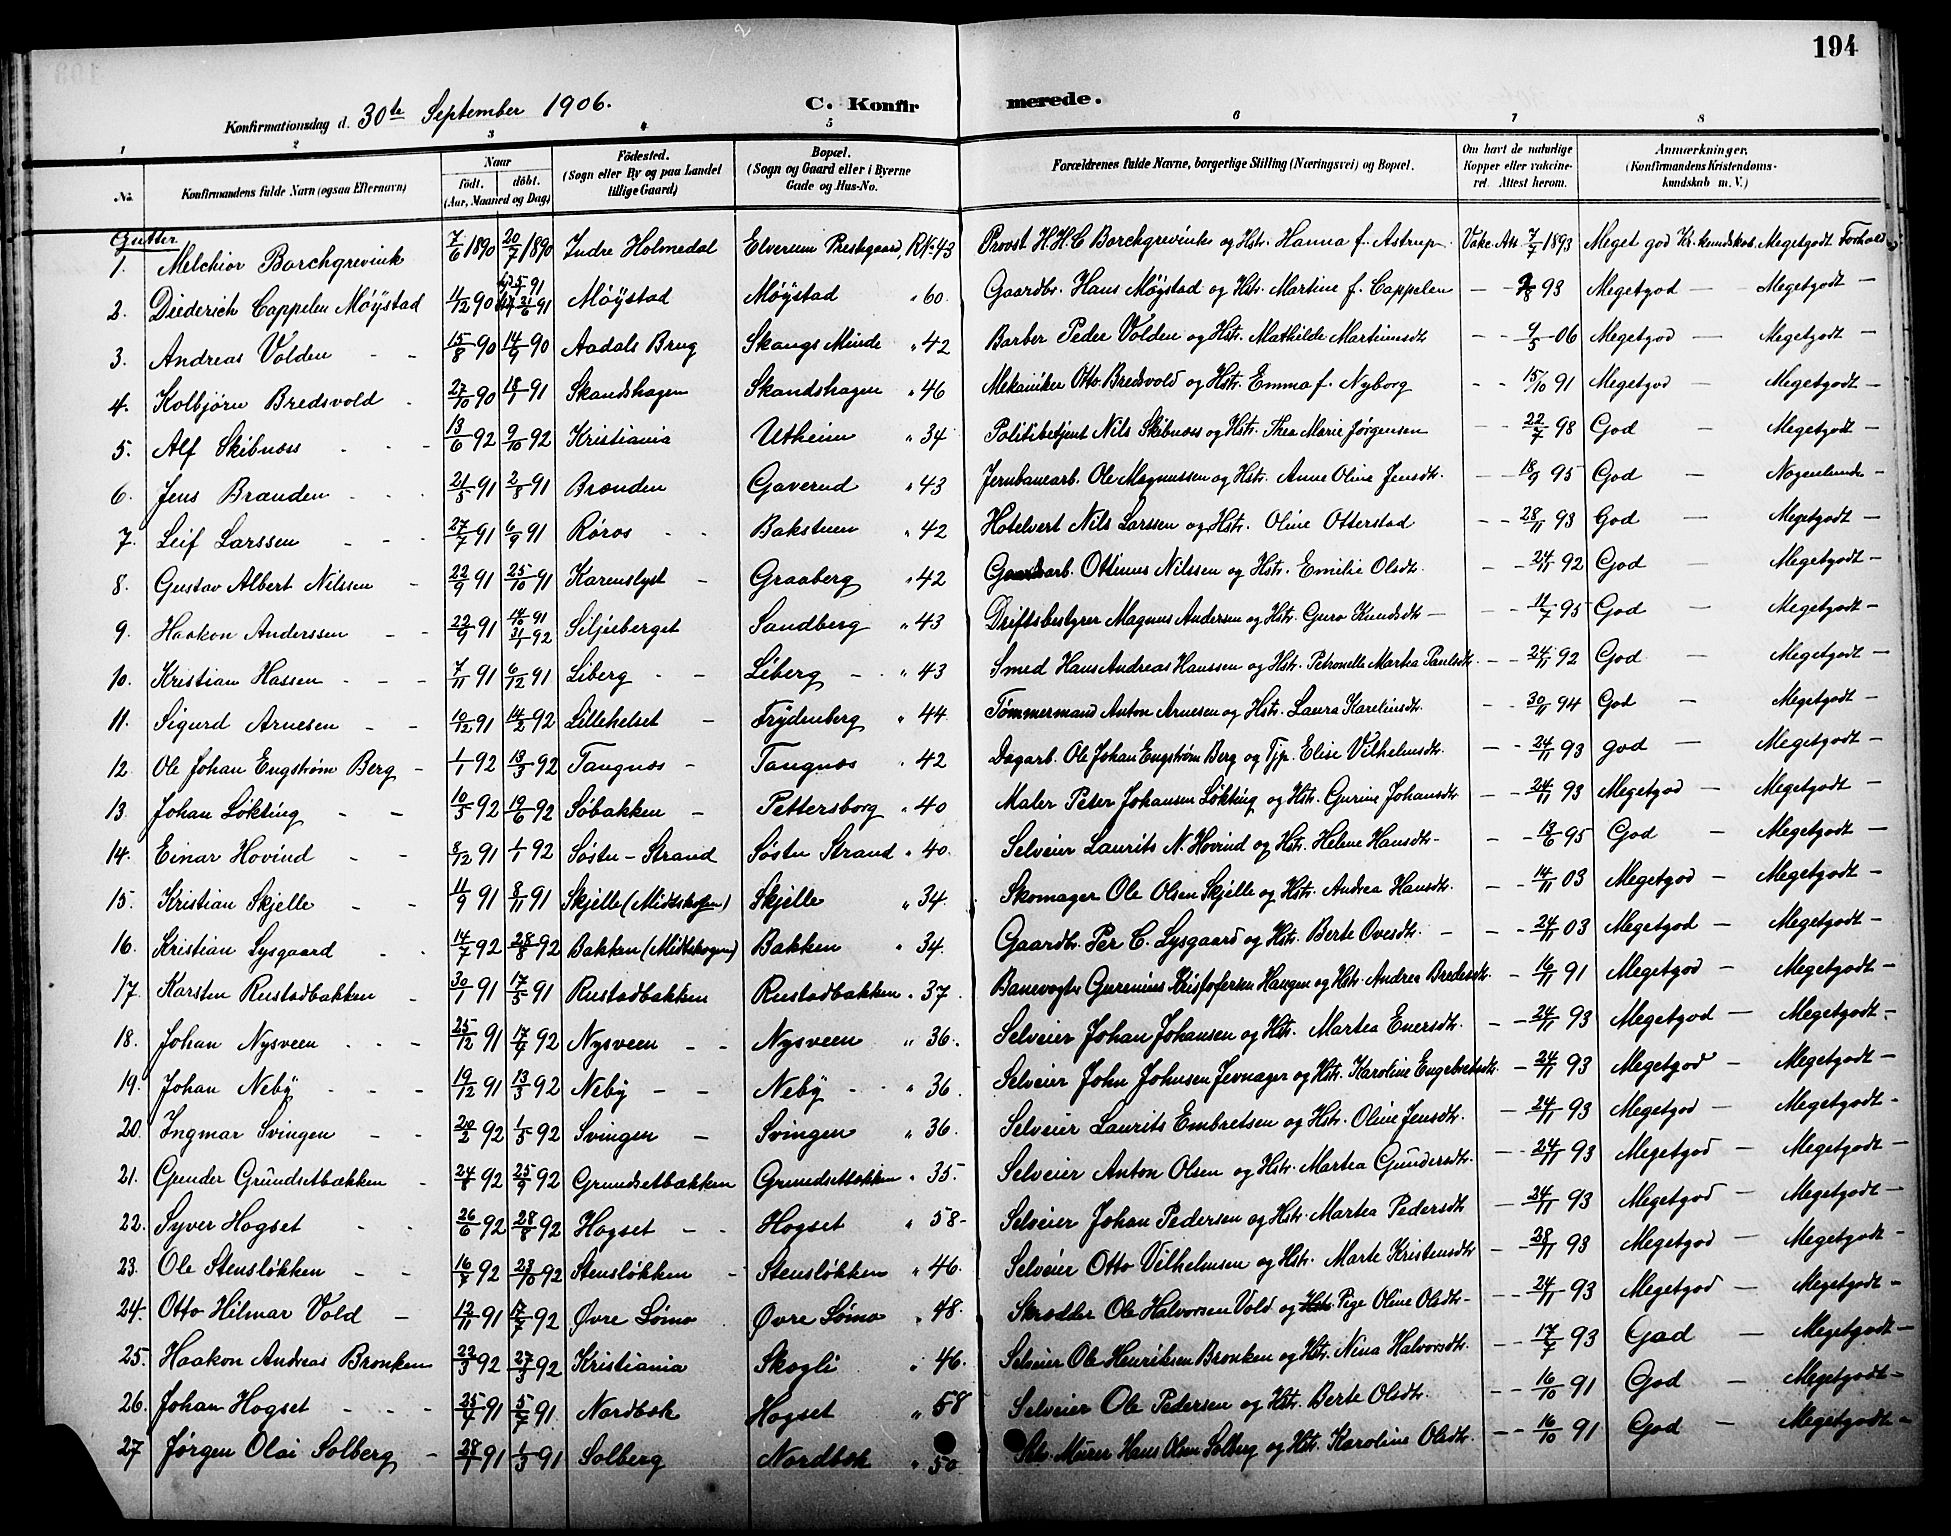 194
Konfirmationsdag d. 30te September 1906. C. Konfirmerede.
1 2 3 4 5 6 7 8
No. Konfirmandens fulde Navn (ogsaa Efternavn) Naar født. døbt. (Aar, Maaned og Dag) Fødested. (Sogn eller By og paa Landet tillige Gaard) Bopæl. (Sogn og Gaard eller i Byerne Gade og Hus-No. Forældrenes fulde Navne, borgerlige Stilling (Næringsvei) og Bopæl. Om havt de naturlige Kopper eller vakcineret. Attest herom. Anmærkninger, (Konfirmandens Kristendomskundskab m. V.)
Gutter
1. Melchior Borchgrevink 7/6 1890 20/7 1890 Indre Holmedal Elverum Prestegaard, RN. 43 Provst H.H.C Borchgrevink og Hstr. Hanna f. Astrup Vakc. Att. 7/7 1893 Meget god Kr. kundskab. Megetgodt Forhold
2. Diederich Cappelen Møystad 4/12 90 Møystad Møystad " 60 Gaardbr. Hans Møystad og Hstr. Martine f. Cappelen - - 93 Megetgod - Megetgodt -
3. Andreas Volden - - 15/8 90 14/9 90 Aadals Brug Skaugs Minde " 42 Barber Peder Volden og Hstr. Mathilde Martinusdtr - - 9/5 06 Megetgod - Megetgodt -
4. Kolbjørn Bredsvold - 27/10 90 18/1 91 Skandshagen Skandshagen " 46 Mekaniker Otto Bredsvold og Hstr. Emma f. Nyborg - - 15/10 91 Megetgod - Megetgodt -
5. Alf Skibnæss - - - 13/6 92 9/10 92 Kristiania Utheim " 34 Politibetjent Nils Skibnæss og Hstr. Thea Marie Jørgensen - - 22/7 98 God - Megetgodt -
6. Jens Brænden - - - 21/5 91 2/8 91 Brænden Gaverud " 43 Jernbanearb. Ole Magnussen og Hstr. Anne Oline Jensdtr. - - 18/9 95 God - Nogenlunde -
7. Leif Larssen - - - 27/7 91 6/9 91 Røros - - Baksteen " 42 Hotelvert Nils Larssen og Hstr. Oline Otterstad - - 28/11 93 God - Megetgodt -
8. Gustav Albert Nilssen - 22/9 91 25/10 91 Karenslyst - Graaberg " 42 Gaardsarb. Ottinus Nilssen og Hstr. Emilie Olsdtr. - - 24/11 92 God - Megetgodt -
9. Haakon Anderssen - - 22/9 91 14/10 91 31/1 92 Siljieberget Sandberg " 43 Driftsbestyrer Magnus Andersen og Hstr. Guro Knudsdtr - - - 11/7 95 God - Megetgodt -
10. Kristian Hassen - - - 7/11 91 6/12 91 Liberg - - Liberg - - " 43 Smed Hans Andreas Hanssen og Hstr. Petronelle Martea Paulsdtr. - - 24/11 92 God - Megetgodt -
11. Sigurd Arnesen - - 10/12 91 14/2 92 Lillehelset - Frydenberg " 44 Tømmermand Anton Arnesen og Hstr. Laura Karelinsdtr. - - 30/11 94 God - Megetgodt -
12. Ole Johan Engstrøm Berg - 1/1 92 13/3 92 Tangnæs - Tangnæs " 42 Dagarb. Ole Johan Engstrøm Berg og Tjp. Elise Vilhelmsdtr. - - 24/11 93 god - Megetgodt -
13. Johan Løkting - - 10/3 92 19/6 92 Søbakken - Pettersborg " 40 Maler Peter Johansen Løkting og Hstr. Gurine Johansdtr - - 24/11 93 Megetgod - Megetgodt -
14. Einar Hovind - - 8/12 91 1/1 92 Søstu-Strand Søstu Strand " 40. Selveier Laurits N. Hovind og Hstr. Helene Hansdtr - - - 13/6 95 God - Megetgodt -
15. Kristian Skjelle - - 11/9 91 8/11 91 Skjelle (Midtskogen) Skjelle " 34. Skomager Ole Olsen Skjelle og Hstr. Andrea Hansdtr. - - 14/11 03 Megetgod - Megetgodt -
16. Kristian Lysgaard - - 14/7 92 28/8 92 Bakken (Midtskogen) Bakken " 34. Gaardbr. Per C. Lysgaard og Hstr. Berte Ovesdtr. - - - 24/11 03 Megetgod - Megetgodt -
17. Karsten Rustadbakken - 30/1 91 17/5 91 Rustadbakken Rustadbakken " 37. Banevogter Gurenius Kristofersen Haugen og Hstr. Andrea Bredesdtr. - 16/11 91 Megetgod - Megetgodt -
18. Johan Nysveen - - - 25/12 91 17/4 92 Nysveen - - Nysveen " 36. Selveier Johan Johansen og Hstr. Martea Enersdtr. - - 24/11 93 Megetgod - Megetgodt -
19. Johan Neby - - - 19/12 91 13/3 92 Neby - - Neby - - " 36. Selveier John Johnsen Jevnager og Hstr. Karoline Engebretsdtr. - 24/11 93 Megetgod - Megetgodt -
20. Ingmar Svingen - - 20/2 92 1/5 92 Svingen - Svingen " 36. Selveier Laurits Embretsen og Hstr. Oline Jensdtr. - 24/11 93 Megetgod - Megetgodt -
21. Gunder Grundsetbækken - 24/8 92 25/9 92 Grundsetbækken Grundsetbækken " 35. Selveier Anton Olsen og Hstr. Martea Gundersdtr. - - 24/11 93 Megetgod - Megetgodt -
22. Syver Hogset - - 26/6 92 28/8 92 Hogset - - Hogset " 58 - Selveier Johan Pedersen og Hstr. Martea Pedersdtr - 24/11 93 Megetgod - Megetgodt -
23. Ole Stensløkken - - 16/7 92 23/10 92 Stensløkken - Stensløkken " 46. Selveier Otto Vilhelmsen og Hstr. Marte Kristensdtr - 28/11 93 Megetgod - Megetgodt -
24. Otto Hilmar Vold - 12/11 91 17/7 92 Øvre Sømo Øvre Sømo " 48. Skrædder Ole Halvorsen Vold og Pige Oline Olsdtr - - 24/11 93 Megetgod - Megetgodt -
25. Haakon Andreas Bronken 22/3 92 27/3 92 Kristiania Skogli " 46. Selveier Ole Henriksen Bronken og Hstr. Nina Halvorsdtr. - 17/7 93 God - Megetgodt -
26. Johan Hogset - - - 25/4 91 5/7 91 Nordbæk Hogset " 58 Selveier Ole Pedersen og Hstr. Berte Olsdtr. - - 16/10 91 God - Megetgodt -
27 Jørgen Olai Solberg - 28/1 91 1/3 91 Solberg Nordbæk " 50 Murer Hans Olsen Solberg og Hstr. Karoline Olsdtr. - - 16/10 91 God - Megetgodt -